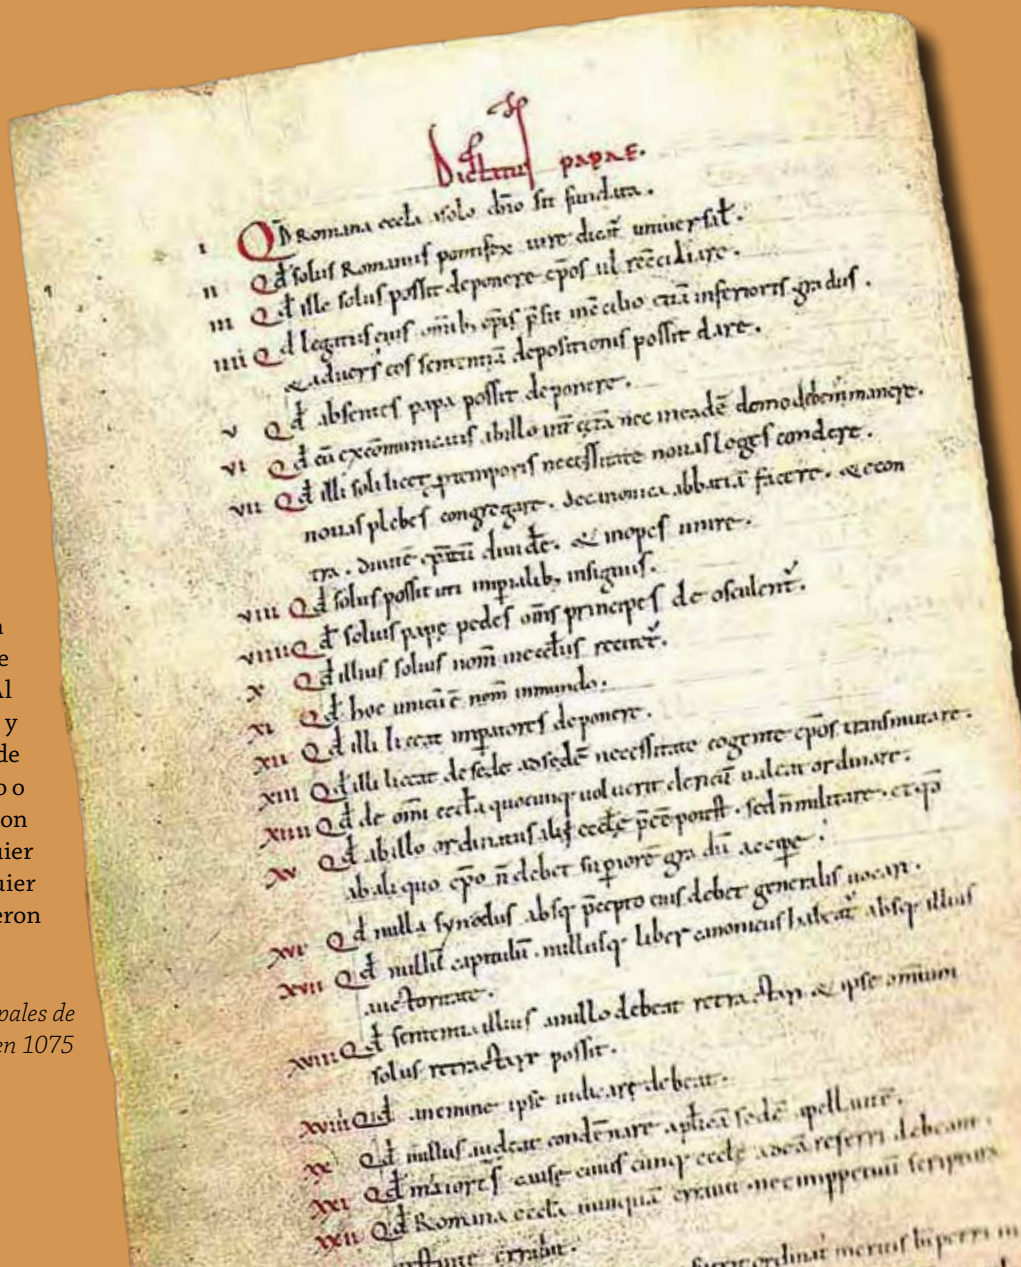 Dictatus papae.
I Qd Romana eccla asolo dno sit fundata.
II Qd solus Romanus pontifex iure dicat̃ universal̃.
III Qd ille solus possit deponere ep̃os ul̃ recc̃iliare.
IIII Qd legatus eius om̃ib; ep̃is p̃sit inc̃cilio etiã inferioris gradus.
& advers̃ eos sententiã depositionis possit dare.
V Qd absentes papa possit deponere.
VI Qd cũ excõmunicatis abillo int̃ cet̃a nec ineadẽ domo debem̃ manere.
VII Qd illi soli licet p temporis necessitate novas leges condere.
novas plebes congregare. de canonica abbatiã facere. & econ
tra. divitẽ ep̃atũ divide. & inopes unire.
VIII Qd solus possit uti imp̃ialib; insigniis.
VIIII Qd solius pape pedes om̃s principes deosculent̃.
X Qd illius solius nom̃ in eccl̃iis recitet̃.
XI Qd hoc unicũ ẽ nom̃ inmundo.
XII Qd illi liceat imp̃atores deponere.
XIII Qd illi liceat de sede adsedẽ necessitate cogente ep̃os transmutare.
XIIII Qd de om̃i eccl̃a quocunq; voluerit clericũ valeat ordinare.
XV Qd abillo ordinatus alii eccl̃e p̃eẽ potest. sed ñ militare. et qd̃
ab aliquo ep̃o ñ debet sup̃iorẽ gradũ accipe.
XVI Qd nulla synodus absq; p̃cepto eius debet generalis vocari.
XVII Qd nullũ capitulũ. nullusq; liber canonicus habeat̃ absq; illius
auctoritate.
XVIII Qd sententia illius anullo debeat retractari & ipse omnium
solus retractare possit.
XVIIII Qd anemine ipse iudicare debeat.
XX Qd nullus audeat condẽnare ap̃licã sedẽ apellantẽ.
XXI Qd maiores cause cuiuscunq; eccl̃e adeã referri debeant.
XXII Qd Romana eccla nunquã erravit. nec inppetuũ scriptura
errabit.
ordinat̃ meritis b̃ petri
n
e
Al
y
de
o o
on
uier
uier
eron
pales de
en 1075